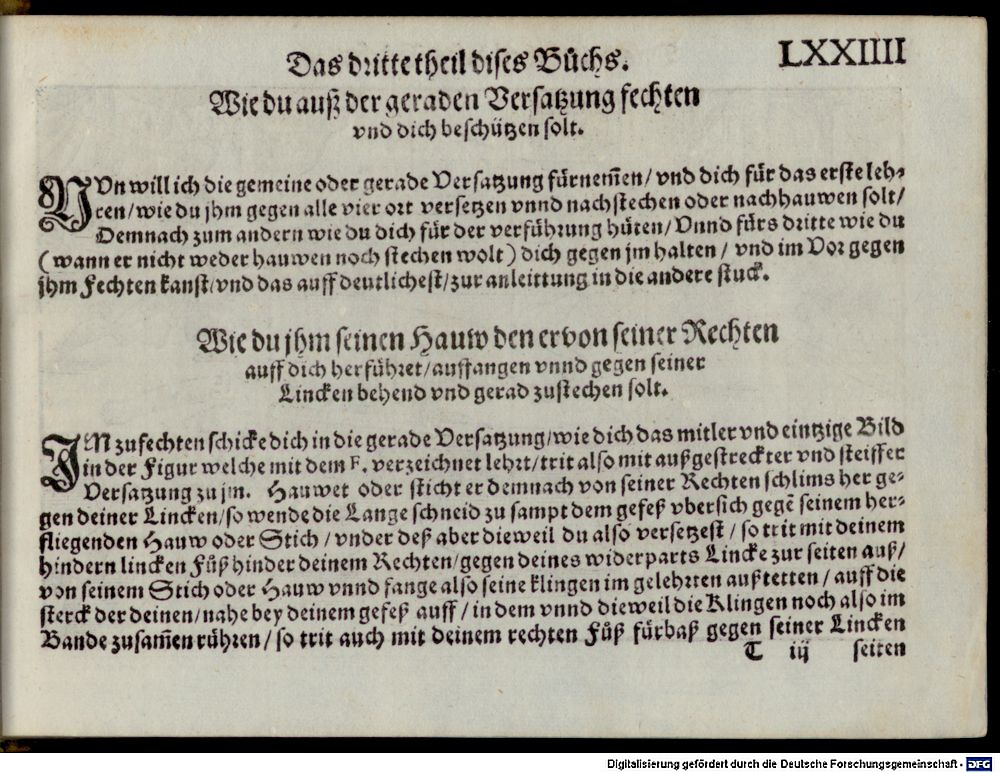 LXXIIII
Das dritte theil dises Bůchs.
Wie du auß der geraden Versatzung fechten
vnd dich beschützen solt.
NVn will ich die gemeine oder gerade Versatzung fürnem̃en / vnd dich für das erste leh-
ren / wie du jhm gegen alle vier ort versetzen vnnd nachstechen oder nachhauwen solt /
Demnach zum andern wie du dich für der verführung hüten / Vnnd fürs dritte wie du
( wann er nicht weder hauwen noch stechen wolt ) dich gegen jm halten / vnd im Vor gegen
jhm Fechten kanst / vnd das auff deutlichest / zur anleittung in die andere stuck.
Wie du jhm seinen Hauw den er von seiner Rechten
auff dich herführet / auffangen vnnd gegen seiner
Lincken behend vnd gerad zustechen solt.
IM zufechten schicke dich in die gerade Versatzung / wie dich das mitler vnd eintzige Bild
in der Figur welche mit dem F. verzeichnet lehrt / trit also mit außgestreckter vnd steiffer
Versatzung zu jm. Hauwet oder sticht er demnach von seiner Rechten schlims her ge-
gen deiner Lincken / so wende die Lange schneid zu sampt dem gefeß vbersich gegẽ seinem her-
fliegenden Hauw oder Stich / vnder deß aber dieweil du also versetzest / so trit mit deinem
hindern lincken Fůß hinder deinem Rechten / gegen deines widerparts Lincke zur seiten auß /
von seinem Stich oder Hauw vnnd fange also seine klingen im gelehrten außtretten / auff die
sterck der deinen / nahe bey deinem gefeß auff / in dem vnnd dieweil die Klingen noch also im
Bande zusam̃en rühren / so trit auch mit deinem rechten Fůß fürbaß gegen seiner Lincken
T iij seiten
Digitalisierung gefördert durch die Deutsche Forschungsgemeinschaft - DFG